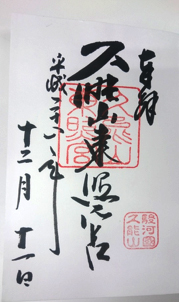 奉拝
久能山東照宮
平成二十六年
十二月十一日
駿河國
久能山